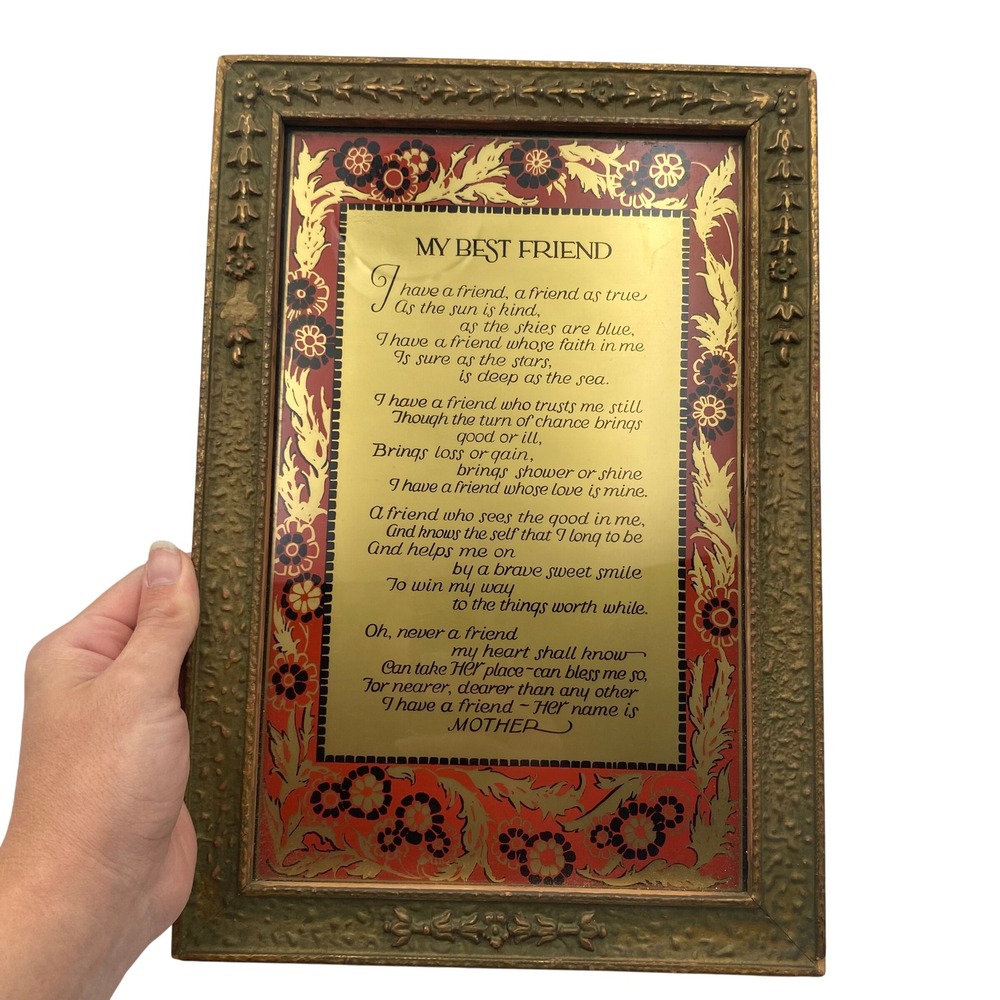 MY BEST FRIEND
I have a friend, a friend as true
As the sun is kind,
as the skies are blue,
I have a friend whose faith in me
Is sure as the stars,
is deep as the sea.
I have a friend who trusts me still
Though the turn of chance brings
good or ill,
Brings loss or gain,
brings shower or shine
I have a friend whose love is mine.
A friend who sees the good in me,
And knows the self that I long to be
And helps me on
by a brave sweet smile
To win my way
to the things worth while.
Oh, never a friend
my heart shall know
Can take Her place~can bless me so,
For nearer, dearer than any other
I have a friend ~ Her name is
MOTHER